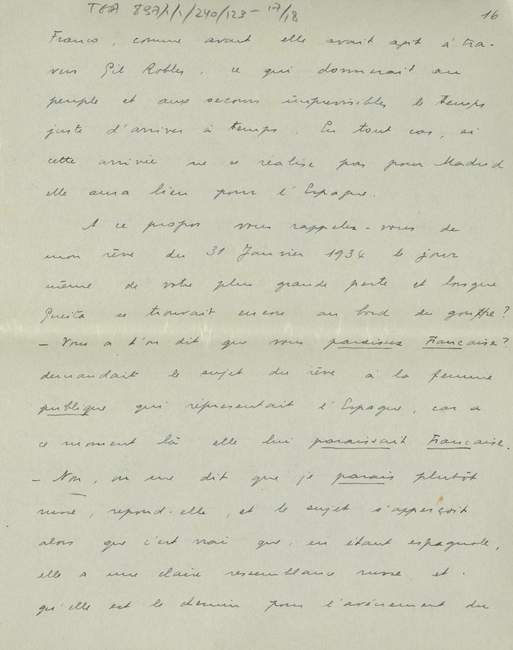 TGA 897/1/1/240/123-17/18
16
Franco, comme avant elle avait agit à tra-
vers Gil Robles, ce qui donnerait au
peuple et aux secours imprévisibles le temps
juste d'arriver à temps. En tout cas, si
cette arrivée ne se réalise pas pour Madrid
elle aura lieu pour l'Espagne.
A ce propos vous rappelez-vous de
mon rêve du 31 Janvier 1934 le jour
même de votre plus grande perte et lorsque
se trouvait encore au bord du gouffre?
- Vous a t'on dit que vous paraissez Française?
demandait le sujet du rêve à la femme
publique qui réprésentait l'Espagne, car a
ce moment là elle lui paraissait Française.
- Non, on me dit que je parais plutôt
russe, répond-elle, et le sujet s'apperçoit
alors que c'est vrai que, en étant espagnole,
elle a une claire ressemblance russe et
qu'elle est le chemin pour l'avènement du